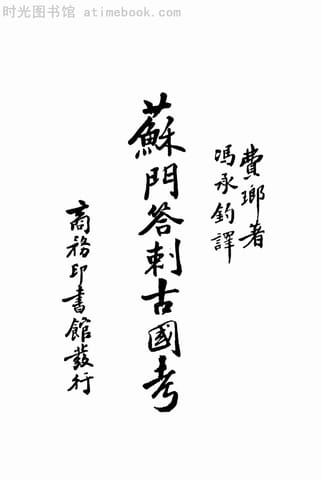 时光图书馆 atimebook.com
費瑯著
馮承鈞譯
蘇門答剌古國考
商務印書館發行